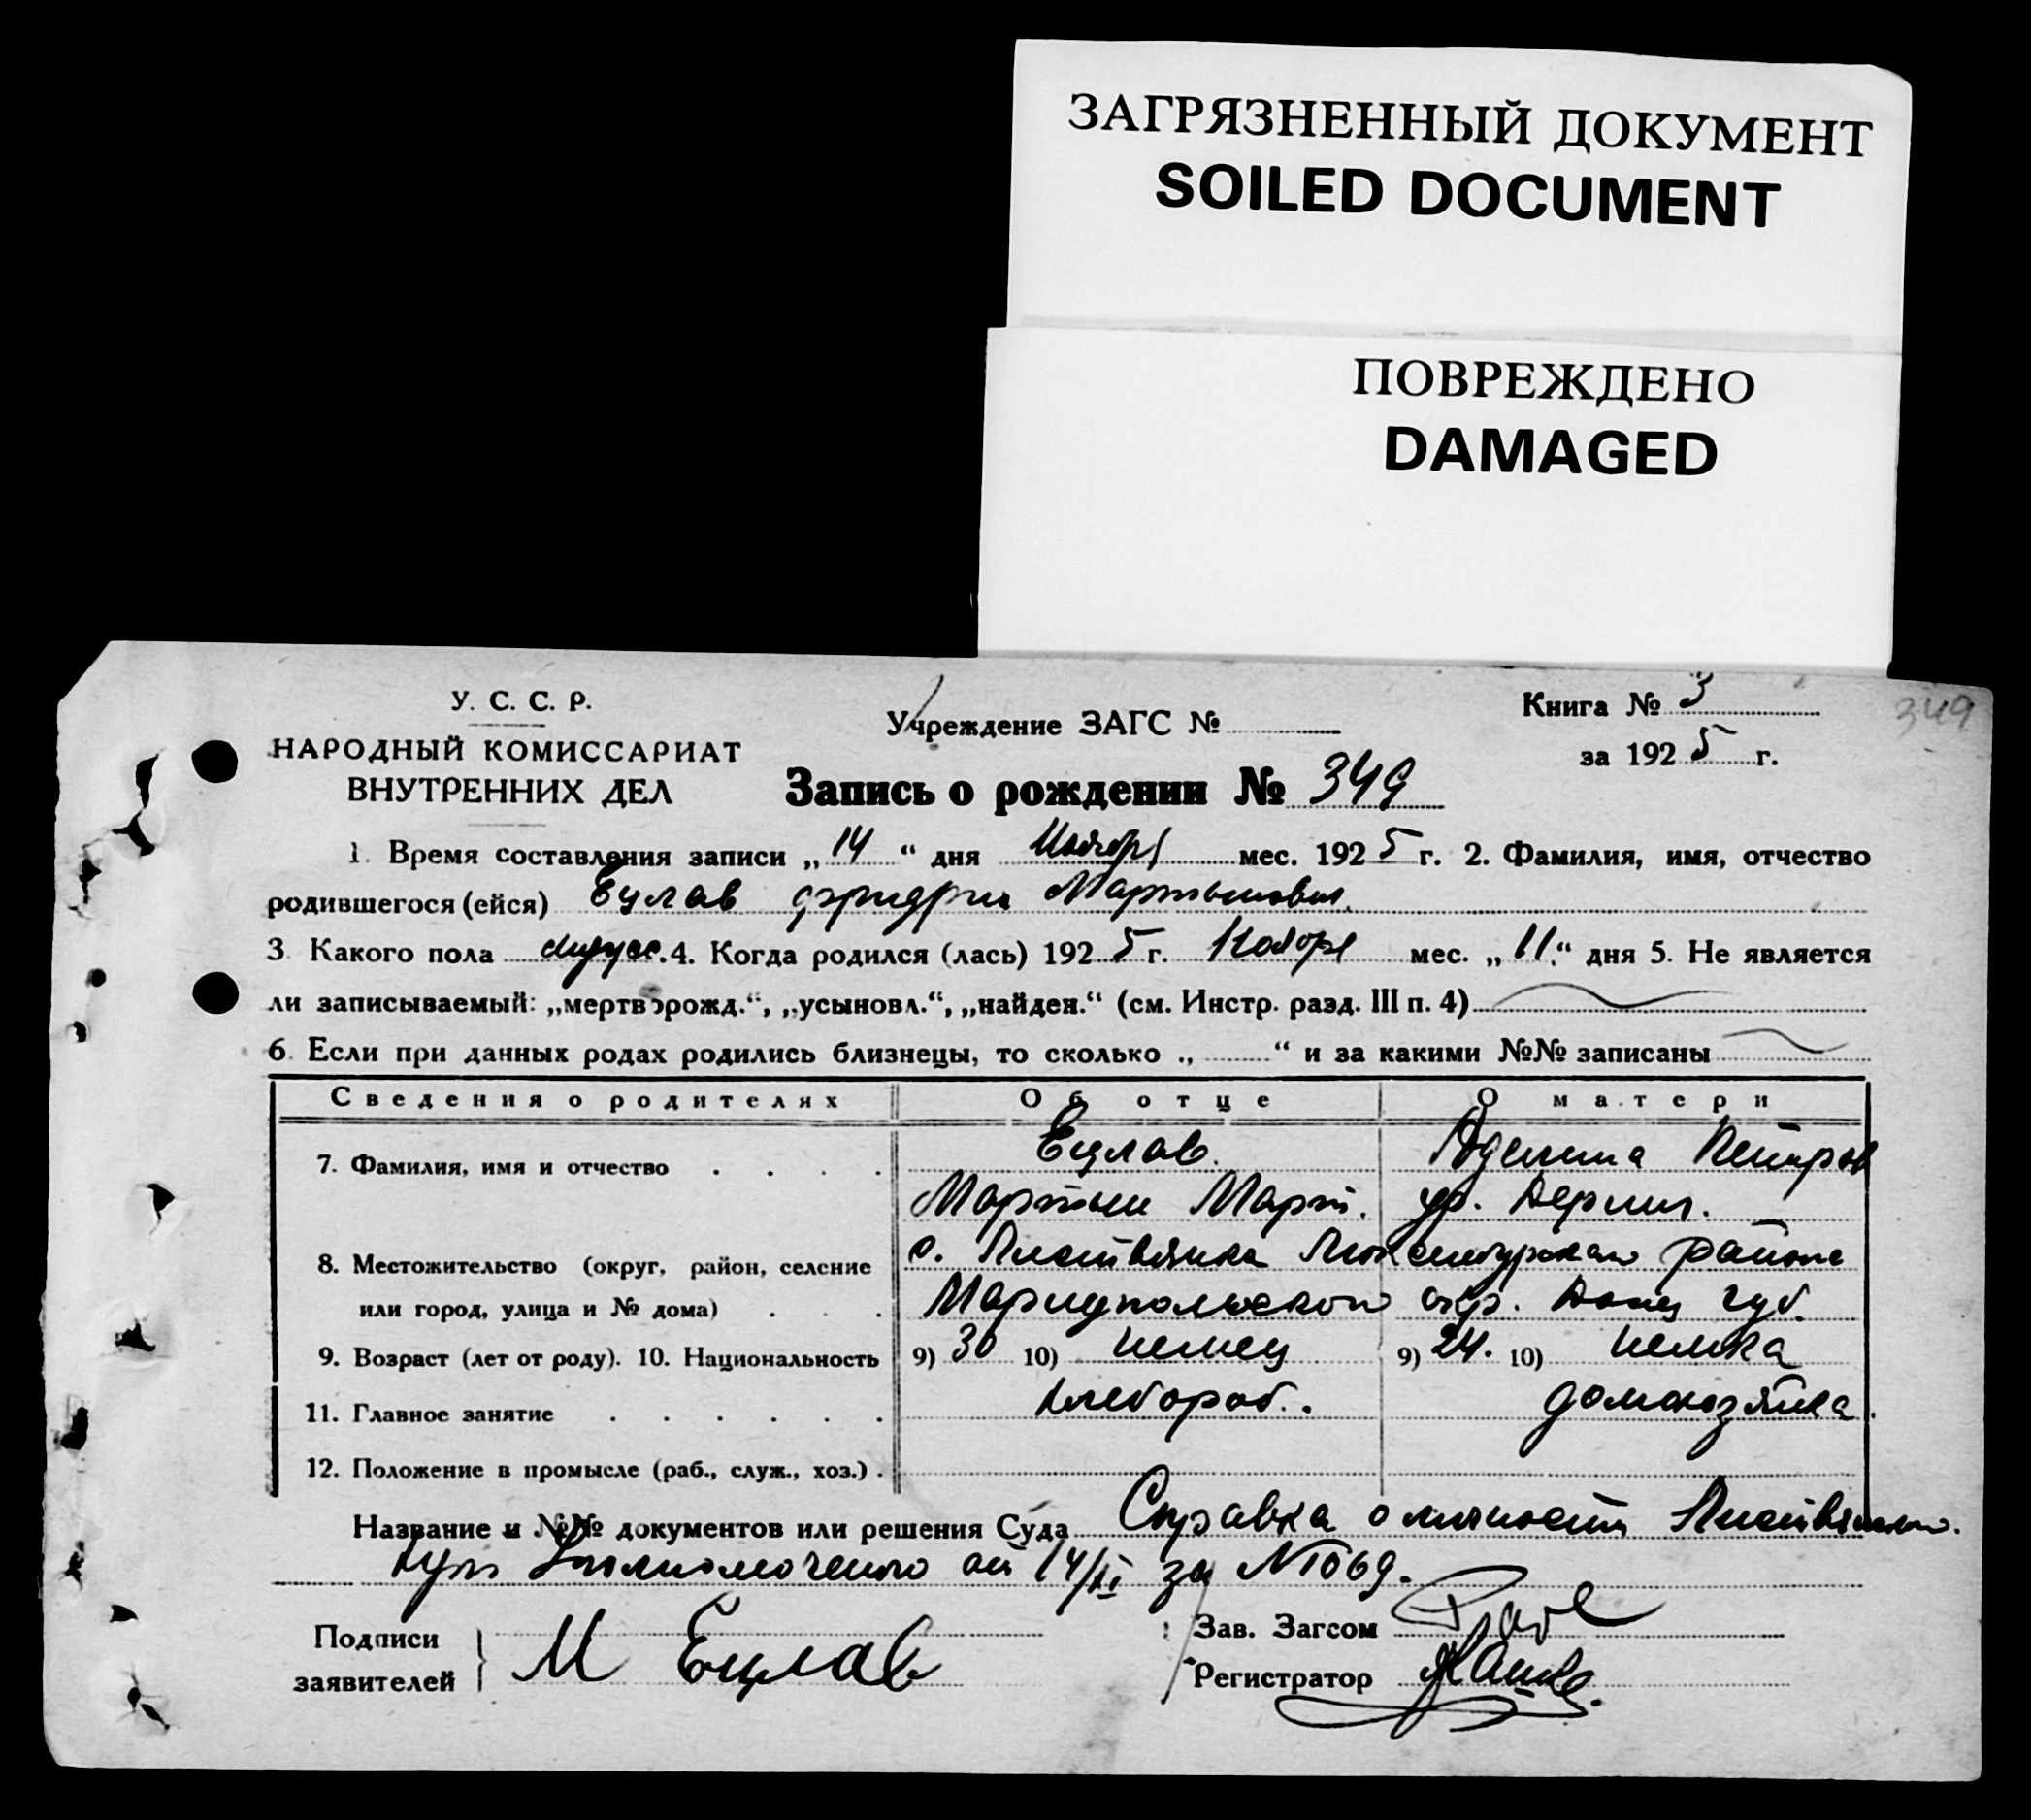 ЗАГРЯЗНЕННЫЙ ДОКУМЕНТ
SOILED DOCUMENT
ПОВРЕЖДЕНО
DAMAGED
У. С. С. Р.
НАРОДНЫЙ КОМИССАРИАТ
ВНУТРЕННИХ ДЕЛ
Учреждение ЗАГС №
Книга № 3
349
за 1925 г.
Запись о рождении № 349
1. Время составления записи „14“ дня Ноября мес. 1925 г. 2. Фамилия, имя, отчество
родившегося (ейся) Ецлав Фридрих Мартынович
3 Какого пола мужс. 4. Когда родился (лась) 1925 г. Ноября мес. „11“ дня 5. Не является
ли записываемый: „мертворожд.“, „усыновл.“, „найден.“ (см. Инстр. разд. III п. 4)
6. Если при данных родах родились близнецы, то сколько „ “ и за какими №№ записаны
Сведения о родителях Об отце О матери
7. Фамилия, имя и отчество . . . . Ецлав. Аделина Петров
Мартын Март. ур.
8. Местожительство (округ, район, селение с. Листвянка Люксембургского района
или город, улица и № дома) . . . Мариупольского окр. Донец губ.
9. Возраст (лет от роду). 10. Национальность 9) 30 10) немец 9) 24. 10) немка
11. Главное занятие . . . . . . хлебороб. домохозяйка.
12. Положение в промысле (раб., служ., хоз.) .
Название и №№ документов или решения Суда Справка о личности
от 14/XI за №1069.
Подписи
заявителей М Ецлав
Зав. Загсом
Регистратор